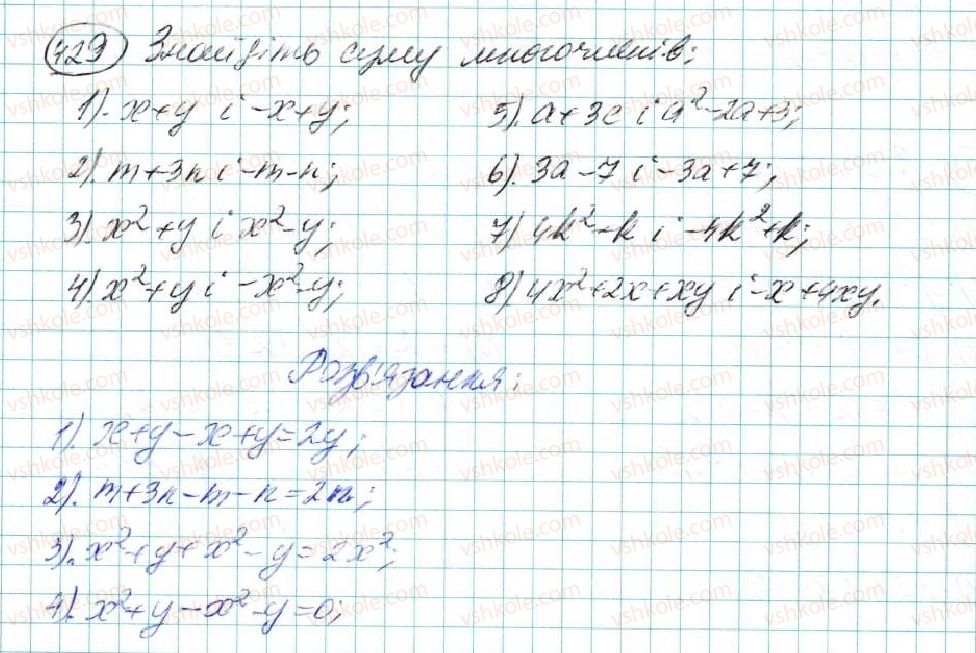 429 Знайдіть суму многочленів:
1). x+y і -x+y;
2). m+3n і -m-n;
3). x²+y і x²-y;
4). x²+y і -x²-y;
5). a+3c і a²-2a+3;
6). 3a-7 і -3a+7;
7) 4k²-k і -4k²+k;
8) 4x²+2x+xy і -x+4xy.
Розв'язання:
1). x+y-x+y=2y;
2). m+3n-m-n=2n;
3). x²+y+x²-y=2x²;
4). x²+y-x²-y=0;
vshkole.com